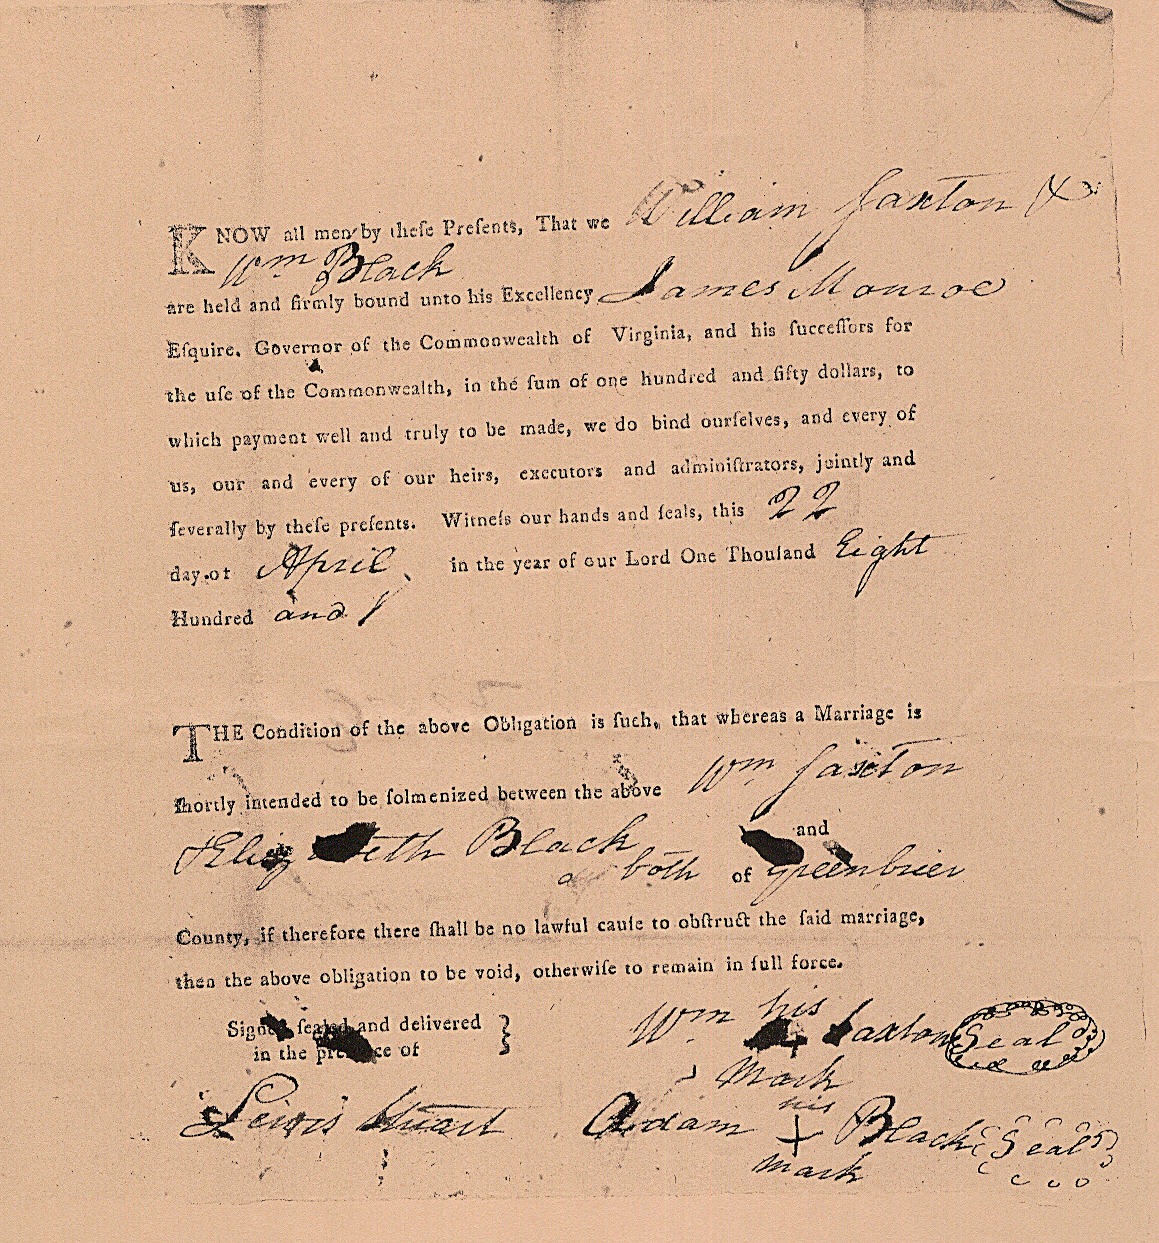 William Saxton &
KNOW all men by theſe Preſents, That we
Wm Black
are held and firmly bound unto his Excellency James Monroe
Eſquire, Governor of the Commonwealth of Virginia, and his ſucceſſors for
the uſe of the Commonwealth, in the ſum of one hundred and fifty dollars, to
which payment well and truly to be made, we do bind ourſelves, and every of
us, our and every of our heirs, executors and adminiſtrators, jointly and
ſeverally by theſe preſents. Witneſs our hands and ſeals, this 22
day of April in the year of our Lord One Thouſand Eight
Hundred and 1
THE Condition of the above Obligation is ſuch, that whereas a Marriage is
ſhortly intended to be ſolmenized between the above Wm Saxton
& Elizabeth Black and
both of greenbrier
County, if therefore there ſhall be no lawful cauſe to obſtruct the ſaid marriage,
then the above obligation to be void, otherwiſe to remain in full force.
Signed ſealed and delivered } Wm his Saxton Seal
in the presence of
mark
Lewis Stuart Adam his + Black Seal
mark